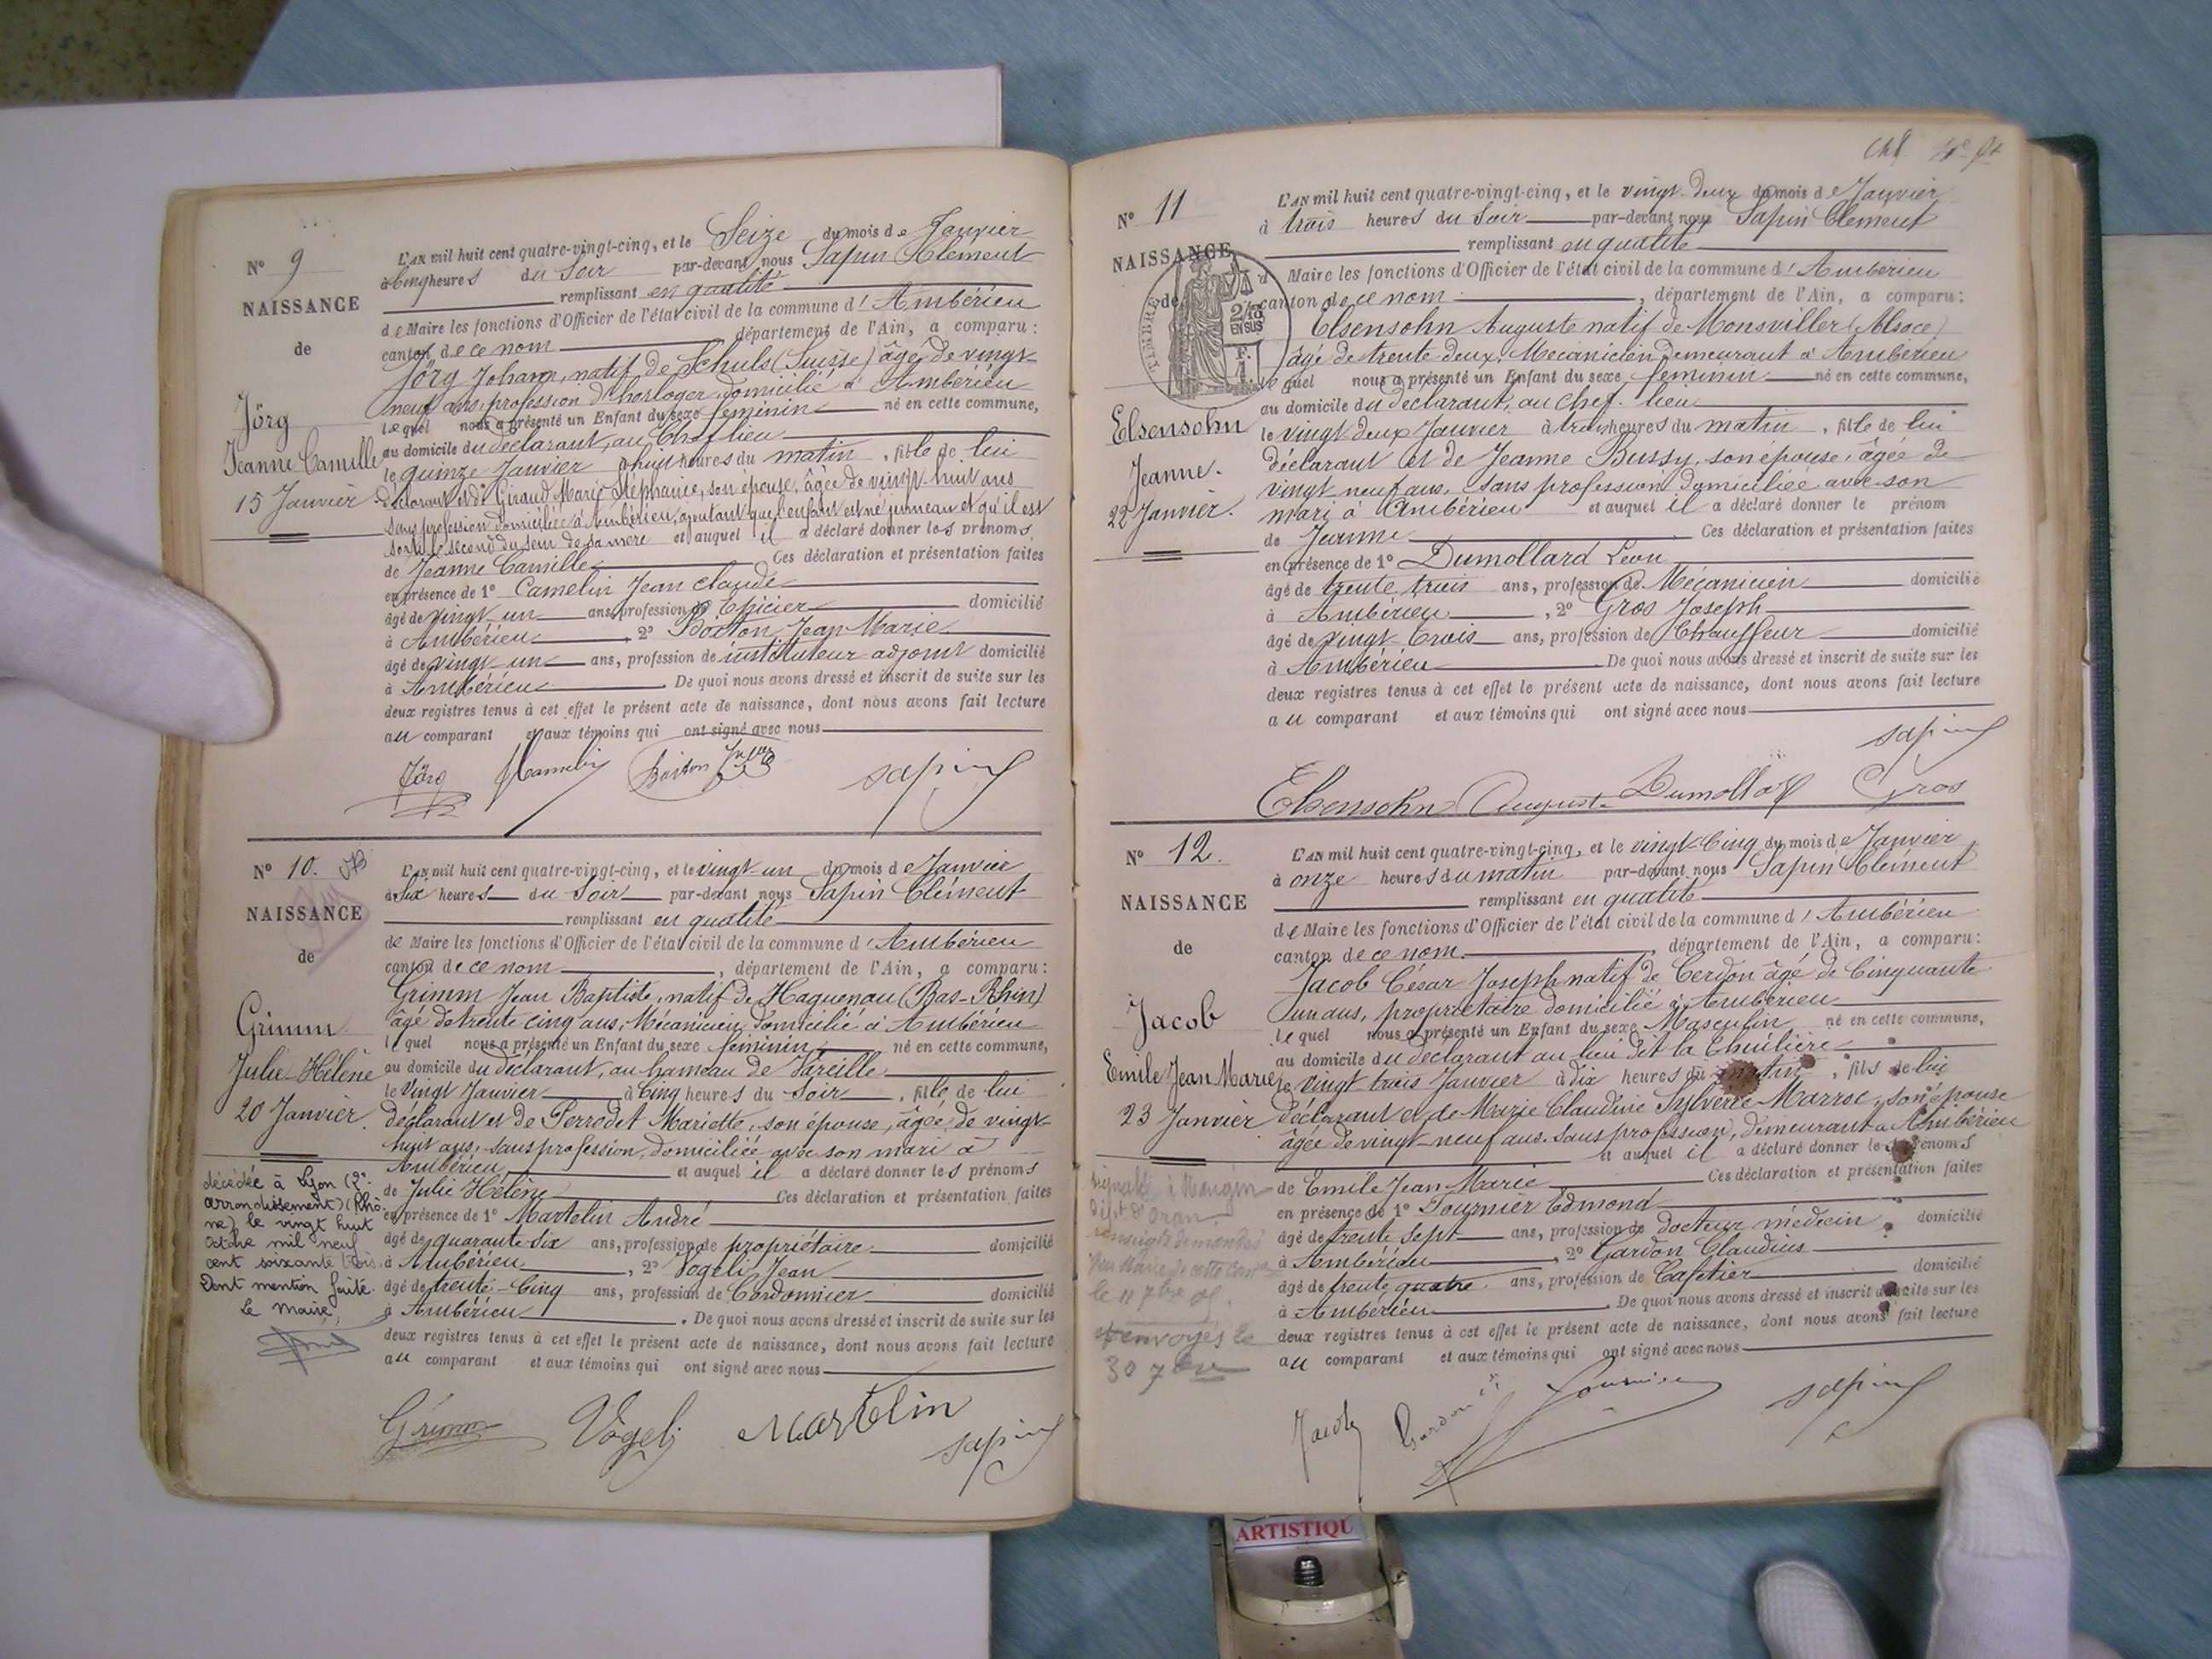 N° 9
NAISSANCE
de
Jörg
Jeanne Camille
15 Janvier
L'AN mil huit cent quatre-vingt-cinq, et le Seize du mois de Janvier
à Cinq heures du Soir par-devant nous Sapin Clément
remplissant en qualité
de Maire les fonctions d'Officier de l'état civil de la commune d'Ambérieu
canton de ce nom, département de l'Ain, a comparu:
Jörg Johann, natif de Schuls (Suisse) âgé de vingt-
neuf ans, profession d'horloger, domicilié à Ambérieu
lequel nous a présenté un Enfant du sexe féminin né en cette commune,
au domicile du déclarant, au Chef lieu
le quinze Janvier à huit heures du matin, fille de lui
déclarant et de Giraud Marie Stéphanie, son épouse, âgée de vingt huit ans
sans profession domiciliée à Ambérieu, ajoutant que l'enfant est né jumeau et qu'il est
sorti le second du sein de sa mère et auquel il a déclaré donner les prénoms
de Jeanne Camille Ces déclaration et présentation faites
en présence de 1° Camelin Jean Claude
âgé de vingt un ans, profession d'Epicier domicilié
à Ambérieu, 2° Boiton Jean Marie
âgé de vingt un ans, profession de instituteur adjoint domicilié
à Ambérieu. De quoi nous avons dressé et inscrit de suite sur les
deux registres tenus à cet effet le présent acte de naissance, dont nous avons fait lecture
au comparant et aux témoins qui ont signé avec nous
Jörg Camelin Boiton Sapin
N° 10.
NAISSANCE
de
Grimm
Julie-Hélène
20 Janvier.
décédée à Lyon (2e
arrondissement) (Rhô-
ne) le vingt huit
octobre mil neuf
cent soixante trois.
Dont mention faite.
Le Maire,
L'AN mil huit cent quatre-vingt-cinq, et le vingt-un du mois de Janvier
à Six heures du Soir par-devant nous Sapin Clément
remplissant en qualité
de Maire les fonctions d'Officier de l'état civil de la commune d'Ambérieu
canton de ce nom, département de l'Ain, a comparu:
Grimm Jean Baptiste, natif de Haguenau (Bas-Rhin)
âgé de trente cinq ans, Mécanicien, domicilié à Ambérieu
lequel nous a présenté un Enfant du sexe féminin né en cette commune,
au domicile du déclarant, au hameau de Vareille
le Vingt Janvier à Cinq heures du Soir, fille de lui
déclarant et de Perrodet Mariette, son épouse, âgée de vingt-
huit ans, sans profession, domiciliée avec son mari à
Ambérieu et auquel il a déclaré donner les prénoms
de Julie Hélène Ces déclaration et présentation faites
en présence de 1° Martelin André
âgé de quarante six ans, profession de propriétaire domicilié
à Ambérieu, 2° Vogeli Jean
âgé de trente-Cinq ans, profession de Cordonnier domicilié
à Ambérieu. De quoi nous avons dressé et inscrit de suite sur les
deux registres tenus à cet effet le présent acte de naissance, dont nous avons fait lecture
au comparant et aux témoins qui ont signé avec nous
Grimm Vogeli Martelin Sapin
N° 11
NAISSANCE
de
TIMBRE
2/10
EN SUS
Elsensohn
Jeanne.
22 Janvier.
L'AN mil huit cent quatre-vingt-cinq, et le vingt-deux du mois de Janvier
à trois heures du Soir par-devant nous Sapin Clément
remplissant en qualité
de Maire les fonctions d'Officier de l'état civil de la commune d'Ambérieu
canton de ce nom, département de l'Ain, a comparu:
Elsensohn Auguste natif de Monsviller (Alsace)
âgé de trente deux, Mécanicien demeurant à Ambérieu
lequel nous a présenté un Enfant du sexe féminin né en cette commune,
au domicile du déclarant, au chef-lieu
le vingt deux Janvier à trois heures du matin, fille de lui
déclarant et de Jeanne Bussy, son épouse, âgée de
vingt neuf ans, sans profession domiciliée avec son
mari à Ambérieu et auquel il a déclaré donner le prénom
de Jeanne Ces déclaration et présentation faites
en présence de 1° Dumollard Léon
âgé de trente trois ans, profession de Mécanicien domicilié
à Ambérieu, 2° Gros Joseph
âgé de vingt-trois ans, profession de Chauffeur domicilié
à Ambérieu De quoi nous avons dressé et inscrit de suite sur les
deux registres tenus à cet effet le présent acte de naissance, dont nous avons fait lecture
au comparant et aux témoins qui ont signé avec nous
Sapin
Elsensohn Auguste Dumollard Gros
N° 12.
NAISSANCE
de
Jacob
Emile Jean Marie
23 Janvier
L'AN mil huit cent quatre-vingt-cinq, et le vingt-Cinq du mois de Janvier
à onze heures du matin par-devant nous Sapin Clément
remplissant en qualité
de Maire les fonctions d'Officier de l'état civil de la commune d'Ambérieu
canton de ce nom, département de l'Ain, a comparu:
Jacob César Joseph natif de Cerdon âgé de Cinquante
un ans, propriétaire domicilié à Ambérieu
lequel nous a présenté un Enfant du sexe Masculin né en cette commune,
au domicile du déclarant au lieu dit la Thuilière
le vingt trois Janvier à dix heures du matin, fils de lui
déclarant et de Marie Claudine Sylverie son épouse
âgée de vingt-neuf ans, sans profession, demeurant à Ambérieu
et auquel il a déclaré donner les prénoms
de Emile Jean Marie Ces déclaration et présentation faites
en présence de 1° Fournier Edmond
âgé de trente sept ans, profession de docteur médecin domicilié
à Ambérieu, 2° Gardon Claudius
âgé de trente quatre ans, profession de Cafetier domicilié
à Ambérieu. De quoi nous avons dressé et inscrit de suite sur les
deux registres tenus à cet effet le présent acte de naissance, dont nous avons fait lecture
au comparant et aux témoins qui ont signé avec nous
Jacob Gardon Fournier Sapin
ARTISTIQU